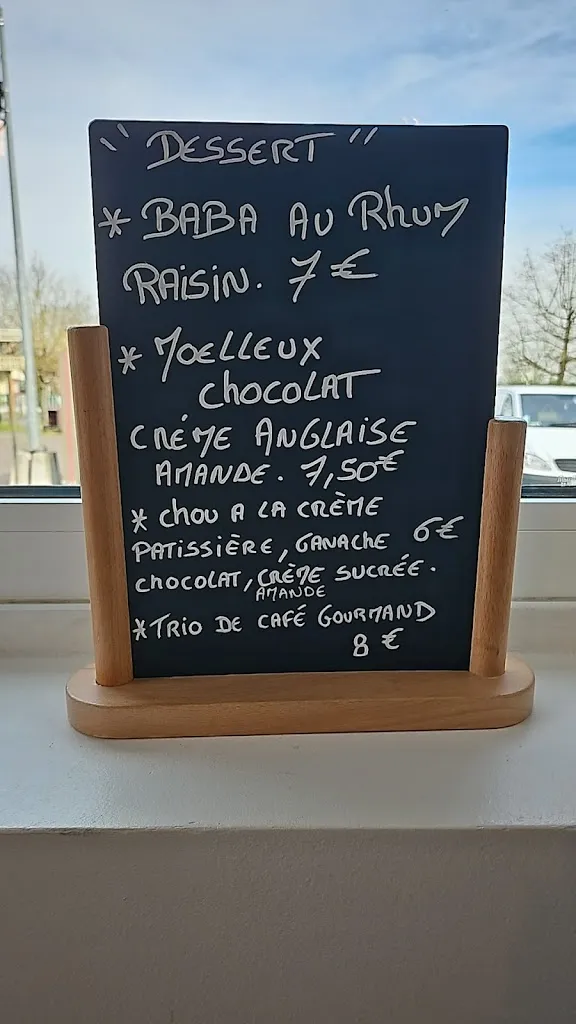 " DESSERT "
* BABA AU Rhum
RAISIN. 7€
* MOELLEUX
chocolAT
CRÉME ANGLAISE
AMANDE. 7,50€
* chou A LA CRÈME
PATISSIÈRE, GANACHE 6€
chocolAT, CRÈME SUCRÉE.
AMANDE
* TRIO DE CAFÉ GOURMAND
8 €